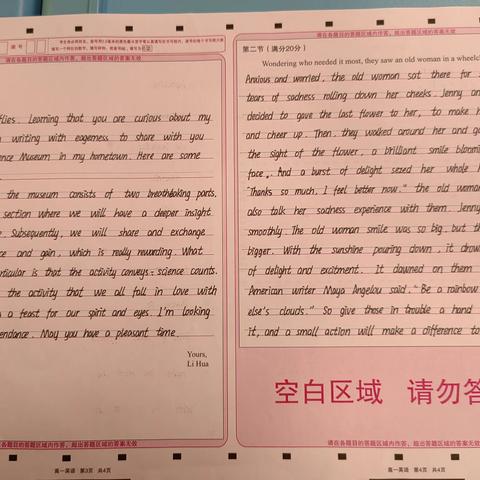 请在各题目的答题区域内作答，超出答题区域的答案无效
flies. Learning that you are curious about my
writing with eagerness to share with you
ence Museum in my hometown. Here are some
the museum consists of two breathtaking parts.
section where we will have a deeper insight
Subsequently, we will share and exchange
ce and gain, which is really rewarding. What
articular is that the activity conveys: science counts.
the activity that we all fall in love with
a feast for our spirit and eyes. I'm looking
endance. May you have a pleasant time.
Yours,
Li Hua
在各题目的答题区域内作答，超出答题区域的答案无效
高一英语 第3页 共4页
请在各题目的答题区域内作答，超出答题区域的答案无效
第二节（满分20分）
Wondering who needed it most, they saw an old woman in a wheelch
Anxious and worried, the old woman sat there for
tears of sadness rolling down her cheeks. Jenny an
decided to gave the last flower to her, to make h
and cheer up. Then, they walked around her and ga
the sight of the flower, a brilliant smile bloomin
face. And a burst of delight seized her whole
"Thanks so much, I feel better now." the old woma
also talk her sadness experience with them. Jenny
smoothly. The old woman smile was so big, but th
bigger. With the sunshine pouring down, it drow
of delight and excitment. It dawned on them
American writer Maya Angelou said, "Be a rainbow
else's clouds." So give those in trouble a hand
it, and a small action will make a difference to
空白区域 请勿答
请在各题目的答题区域内作答，超出答题区域的答案无效
高一英语 第4页 共4页